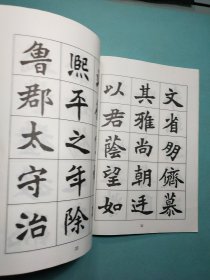 文省朋儕慕
其雅尚朝廷
以君蔭望如
熙平之年除
魯郡太守治